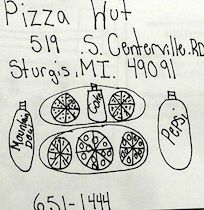 Pizza Hut
519 .S. Centerville.RD
Sturgis.MI. 49091
Mountain Dew
Coke
Pepsi
651-1444